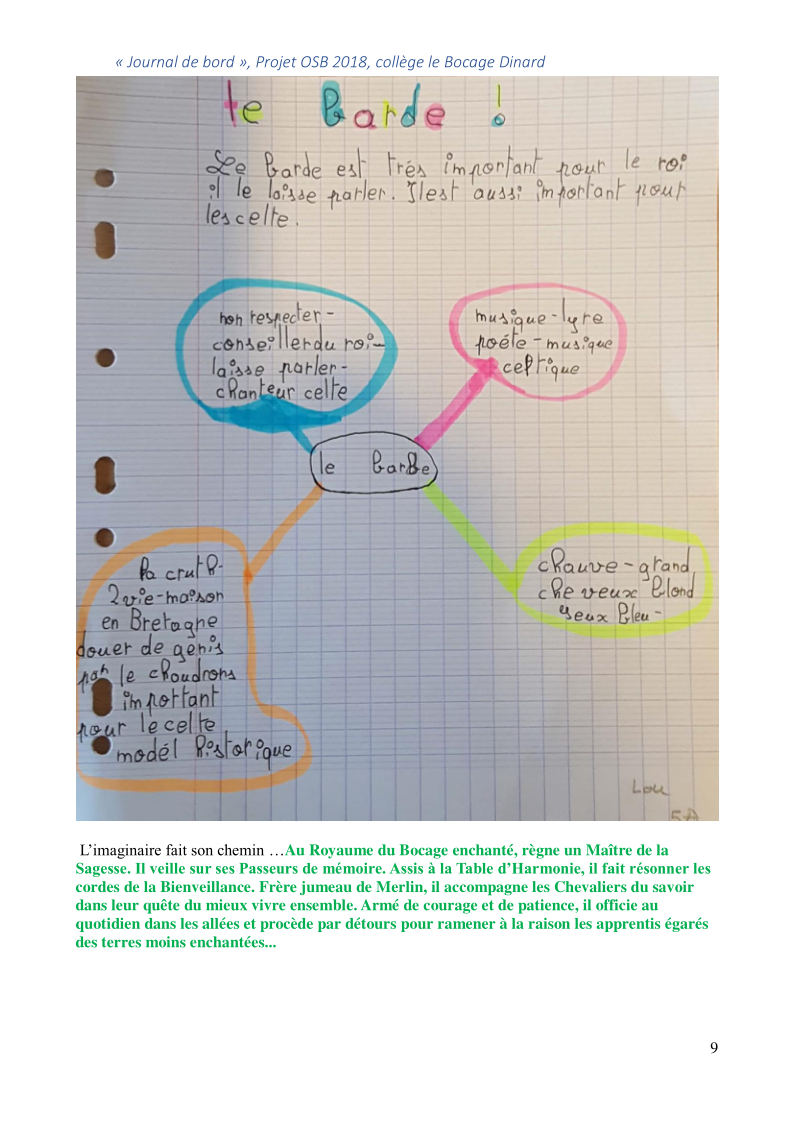 « Journal de bord », Projet OSB 2018, collège le Bocage Dinard
le barde !
Le barde est trés important pour le roi
il le laisse parler. Il est aussi important pour
les celte.
non respecter -
conseiller du roi -
laisse parler -
chanteur celte
musique - lyre
poéte - musique
celtique
le barde
chauve - grand
cheveux blond
yeux bleu -
la cruth -
2 vie - maison
en Bretagne
douer de genis
par le choudrons
important
pour le celte
modél historique
Lou
5A
L’imaginaire fait son chemin …Au Royaume du Bocage enchanté, règne un Maître de la
Sagesse. Il veille sur ses Passeurs de mémoire. Assis à la Table d’Harmonie, il fait résonner les
cordes de la Bienveillance. Frère jumeau de Merlin, il accompagne les Chevaliers du savoir
dans leur quête du mieux vivre ensemble. Armé de courage et de patience, il officie au
quotidien dans les allées et procède par détours pour ramener à la raison les apprentis égarés
des terres moins enchantées...
9